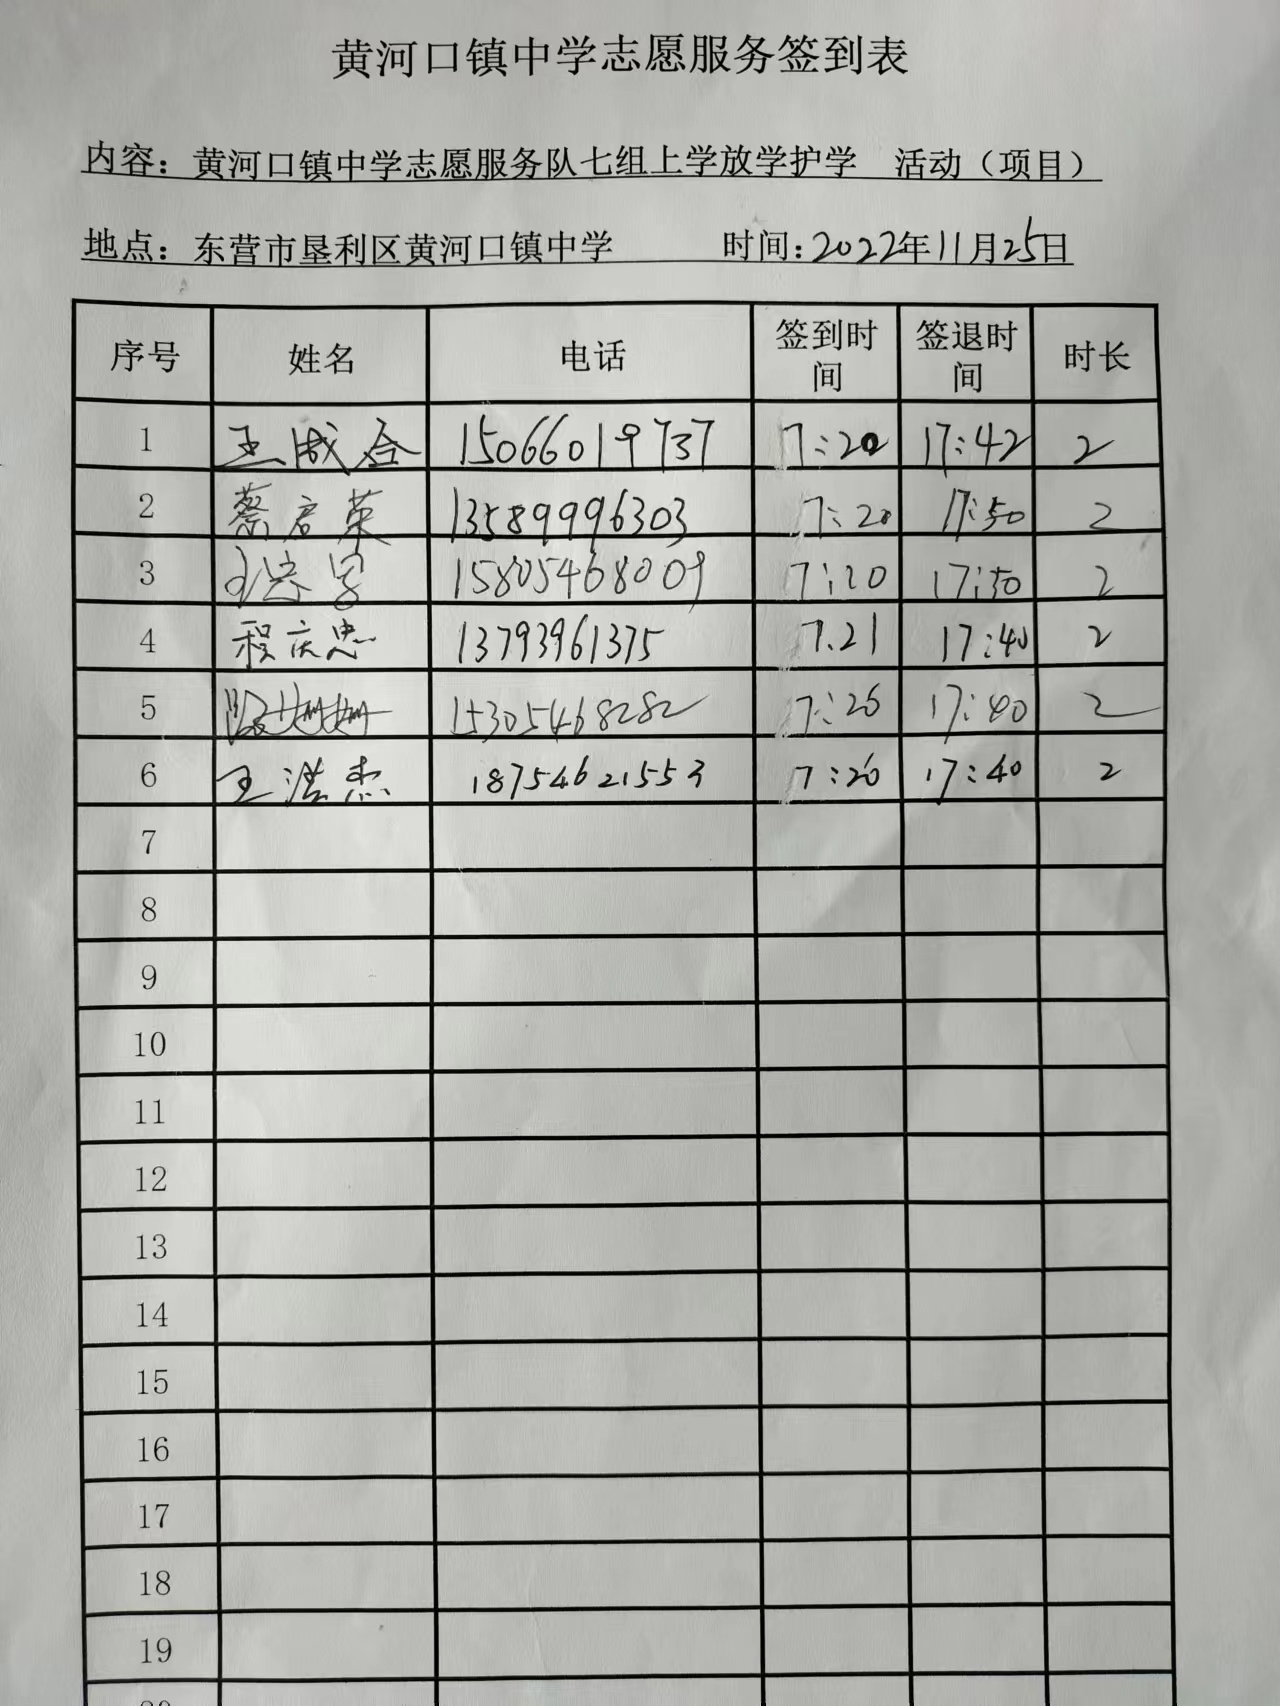 黄河口镇中学志愿服务签到表
内容：黄河口镇中学志愿服务队七组上学放学护学 活动（项目）
地点：东营市垦利区黄河口镇中学 时间：2022年11月25日
序号 姓名 电话 签到时间 签退时间 时长
1 王成合 15066019737 7:20 17:42 2
2 蔡启英 13589996303 7:20 17:50 2
3 15805468009 7:20 17:50 2
4 程庆忠 13793961375 7.21 17:40 2
5 姗姗 15305468282 7:20 17:40 2
6 王浩杰 18754621553 7:20 17:40 2
7
8
9
10
11
12
13
14
15
16
17
18
19